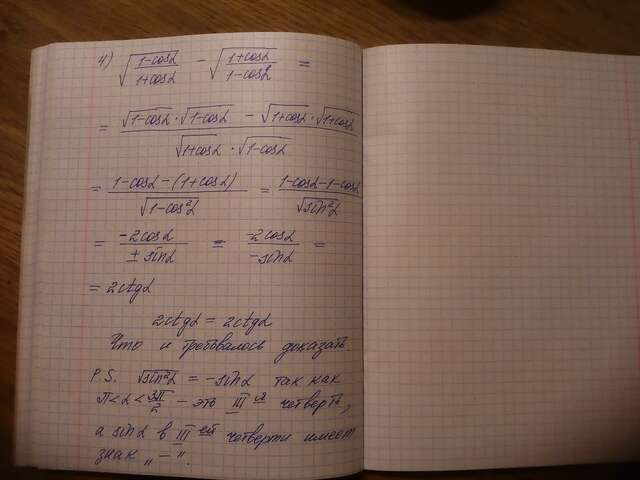 4) √((1-cosα)/(1+cosα)) - √((1+cosα)/(1-cosα)) =
= (√(1-cosα) · √(1-cosα) - √(1+cosα) · √(1+cosα))/(√(1+cosα) · √(1-cosα))
= (1-cosα-(1+cosα))/√(1-cos²α) = (1-cosα-1-cosα)/√(sin²α)
= (-2cosα)/(± sinα) = (-2cosα)/(-sinα) =
= 2ctgα
2ctgα = 2ctgα
Что и требовалось доказать.
P.S. √(sin²α) = -sinα так как
π<α<3π/2 - это III я четверть,
а sinα в III ей четверти имеет
знак „-“.